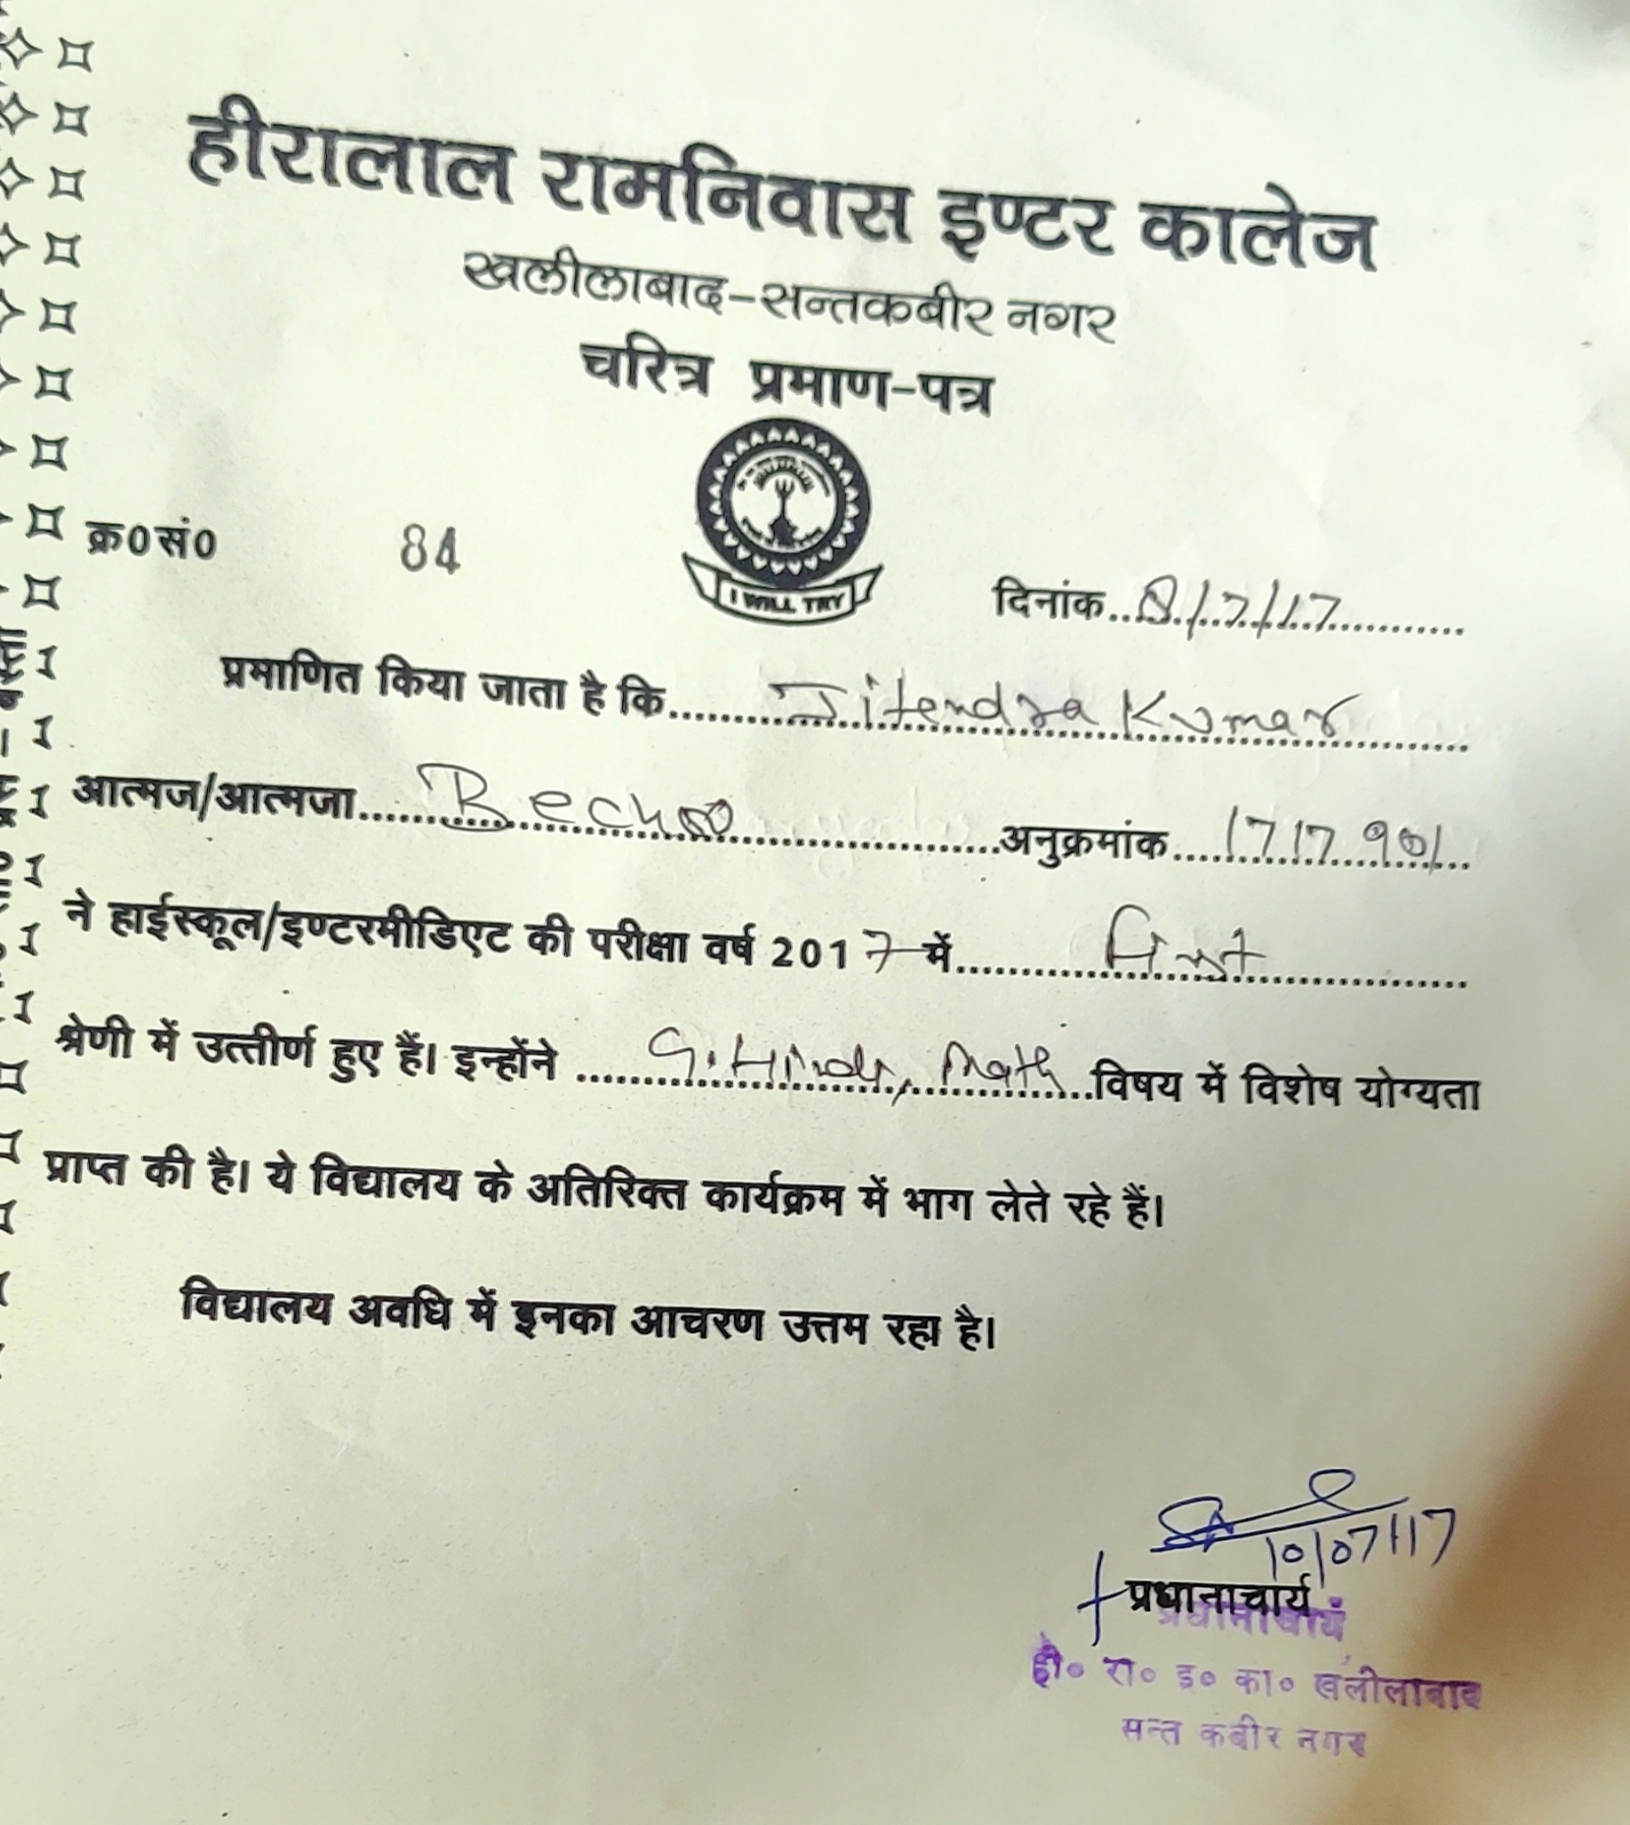 हीरालाल रामनिवास इण्टर कालेज
खलीलाबाद-सन्तकबीर नगर
चरित्र प्रमाण-पत्र
I WILL TRY
क्र0सं0 84
दिनांक 8/7/17
प्रमाणित किया जाता है कि Jitendra Kumar
आत्मज/आत्मजा अनुक्रमांक 1717901
ने हाईस्कूल/इण्टरमीडिएट की परीक्षा वर्ष 2017 में First
श्रेणी में उत्तीर्ण हुए हैं। इन्होंने G.Hindi, Math विषय में विशेष योग्यता
प्राप्त की है। ये विद्यालय के अतिरिक्त कार्यक्रम में भाग लेते रहे हैं।
विद्यालय अवधि में इनका आचरण उत्तम रहा है।
10/07/17
प्रधानाचार्य
प्रधानाचार्य
ही० रा० इ० का० खलीलाबाद
सन्त कबीर नगर